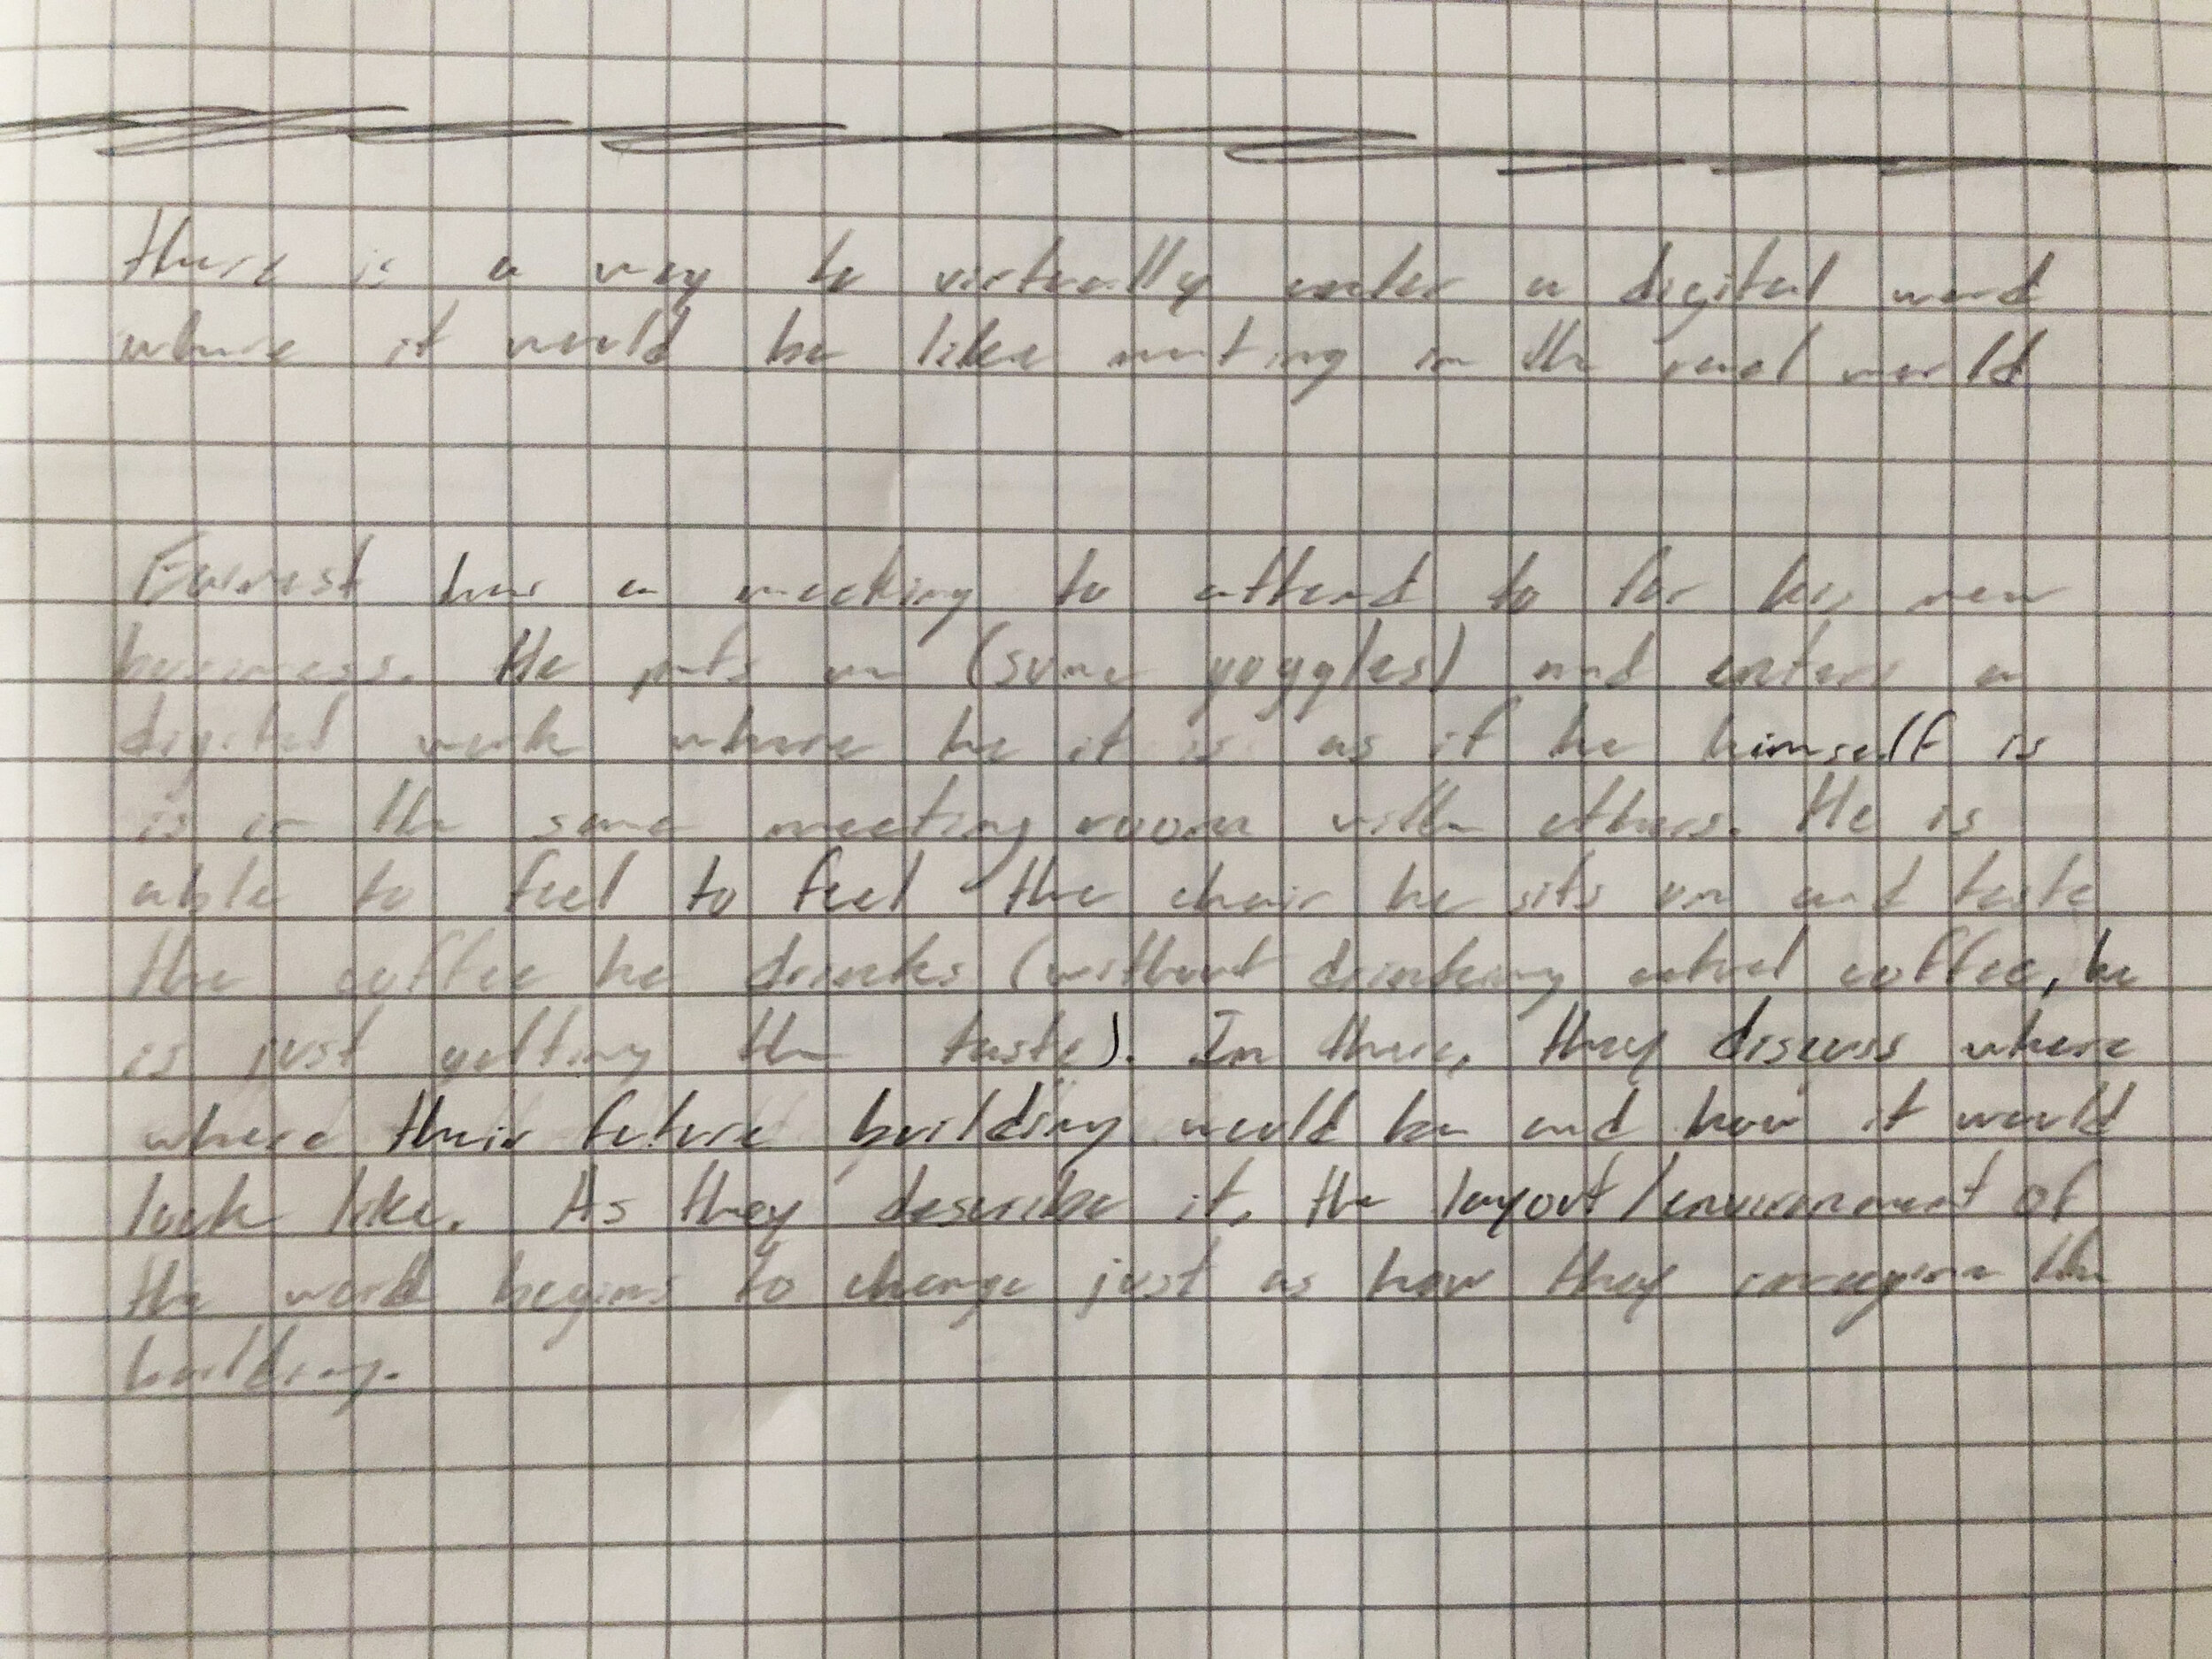 there is a way to virtually enter a digital word
where it would be like meeting in the real world
has a meeting to attend to for his new
business. He puts on (some goggles) and enters a
digital work where he it is as if he himself is
is in the same meeting room with others. He is
able to feel to feel the chair he sits on and taste
the coffee he drinks (without drinking actual coffee, he
is just getting the taste). In there, they discuss where
where their future building would be and how it would
look like. As they describe it, the layout/environment of
the world begins to change just as how they imagine the
building.